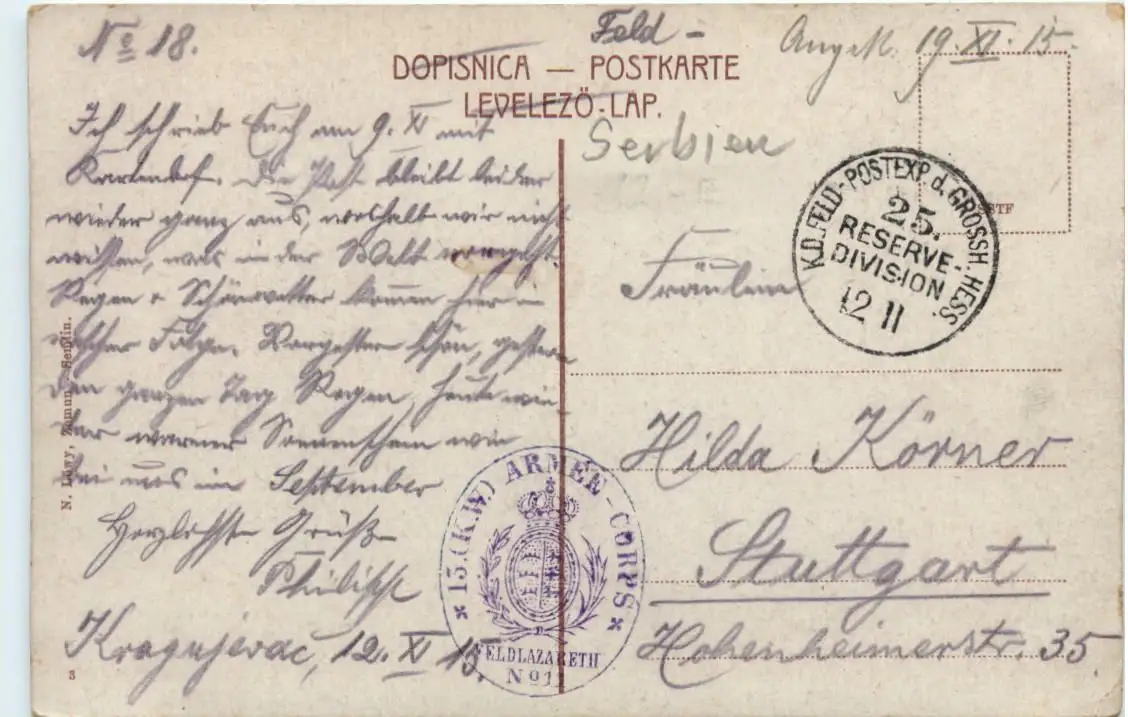 Nº 18.
Feld-
Angek. 19. XI. 15.
DOPISNICA — POSTKARTE
LEVELEZÖ-LAP.
Ich schrieb Euch am 9. XI mit
Kartenbrf. Die Post bleibt leider
wieder ganz aus, weshalb wir nicht
wissen, was in der Welt vorgeht.
Regen & Schönwetter kommen hier in
Folge. Vorgestern schön, gestern
den ganzen Tag Regen, heute wie-
der warmer Sonnenschein wie
bei uns im September
Herzlichste Grüße
Kragujevac, 12. XI 15.
Serbien
Fräulein
Hilda Körner
Stuttgart
Hohenheimerstr. 35
K.D.FELD-POSTEXP. d. GROSSH. HESS.
25.
RESERVE-
DIVISION
12 11
* 15.(K.W.) ARMEE-CORPS *
FELDLAZARETH
Nº 11
N. Lewy, Zemun, Semlin.
3